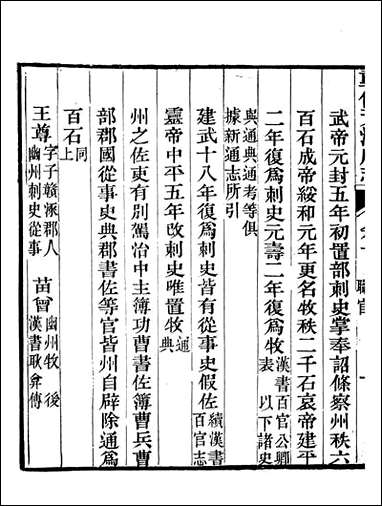 武帝元封五年初置部刺史掌奉詔條察州秩六
百石成帝綏和元年更名牧秩二千石哀帝建平
二年復爲刺史元壽二年復爲牧漢書百官公卿表 以下諸史
與通典通考等俱據新通志所引
建武十八年復爲刺史皆有從事史假佐續漢書百官志
靈帝中平五年改刺史唯置牧通典
州之佐吏有別駕治中主簿功曹書佐簿曹兵曹
部郡國從事史典郡書佐等官皆州自辟除通爲
百石同上
王尊字子贛涿郡人幽州刺史從事 苗曾幽州牧 後漢書耿弇傳
職官